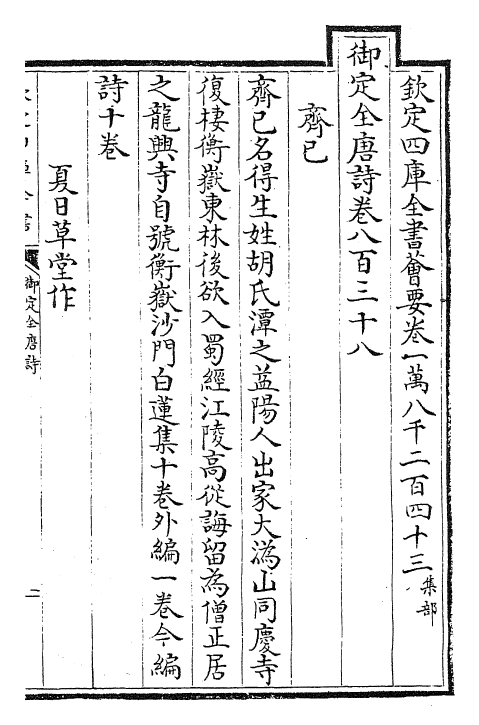 欽定四庫全書薈要卷一萬八千二百四十三集部
御定全唐詩卷八百三十八
齊己
齊己名得生姓胡氏潭之益陽人出家大溈山同慶寺
復棲衡嶽東林後欲入蜀經江陵高從誨留為僧正居
之龍興寺自號衡嶽沙門白蓮集十卷外編一卷今編
詩十卷
夏日草堂作
御定全唐詩